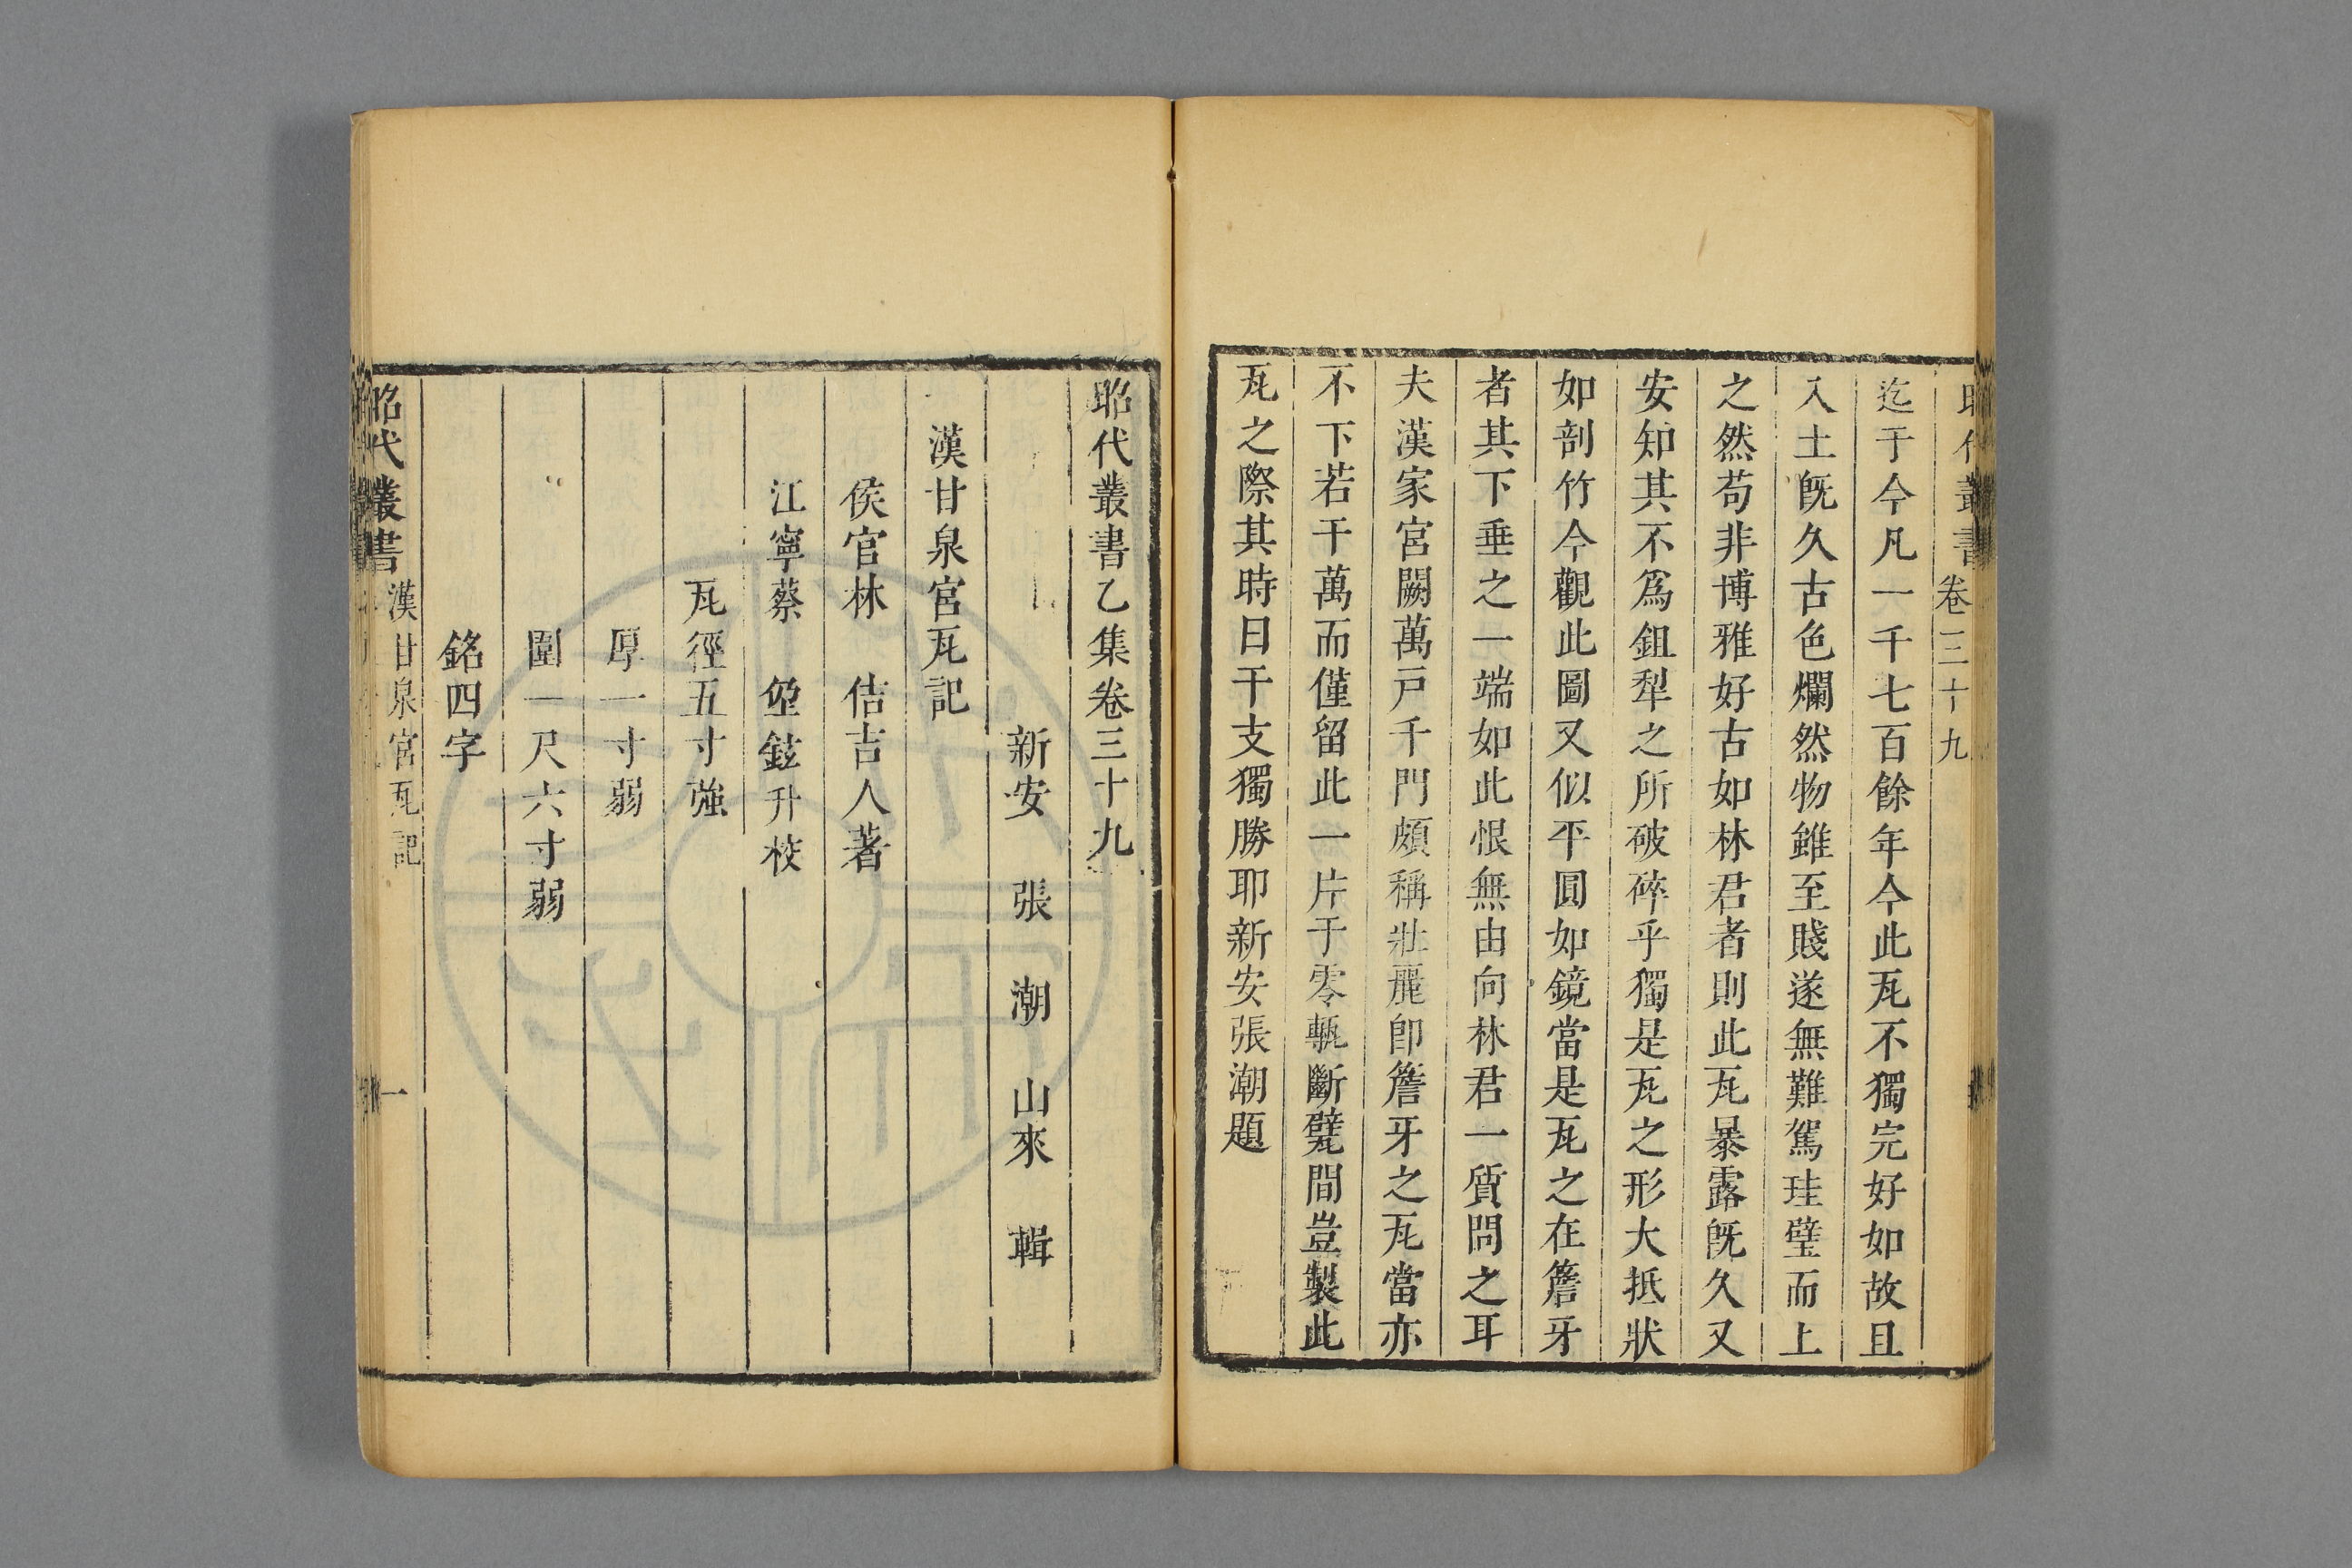 昭代叢書 卷三十九
迄于今凡一千七百餘年今此瓦不獨完好如故且
入土旣久古色爛然物雖至賤遂無難駕珪璧而上
之然苟非博雅好古如林君者則此瓦暴露旣久又
安知其不爲鉏犁之所破碎乎獨是瓦之形大抵狀
如剖竹今觀此圖又似平圓如鏡當是瓦之在簷牙
者其下垂之一端如此恨無由向林君一質問之耳
夫漢家宮闕萬戸千門頗稱壯麗卽簷牙之瓦當亦
不下若干萬而僅留此一片于零甎斷甓間豈製此
瓦之際其時日干支獨勝耶新安張潮題
昭代叢書乙集卷三十九
新安 張 潮 山來 輯
漢甘泉宮瓦記
侯官林 佶吉人著
江寧蔡 鉉升校
瓦徑五寸強
厚一寸弱
圍一尺六寸弱
銘四字
昭代叢書 漢甘泉宮瓦記 一